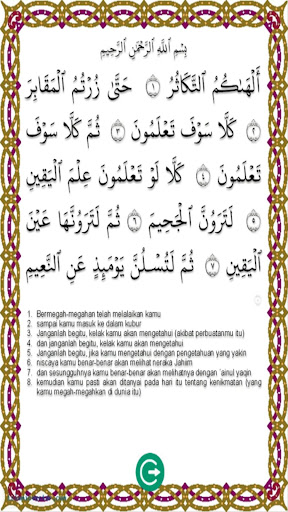 بِسْمِ ٱللَّهِ ٱلرَّحْمَٰنِ ٱلرَّحِيمِ
أَلْهَىٰكُمُ ٱلتَّكَاثُرُ ١ حَتَّىٰ زُرْتُمُ ٱلْمَقَابِرَ
٢ كَلَّا سَوْفَ تَعْلَمُونَ ٣ ثُمَّ كَلَّا سَوْفَ
تَعْلَمُونَ ٤ كَلَّا لَوْ تَعْلَمُونَ عِلْمَ ٱلْيَقِينِ
٥ لَتَرَوُنَّ ٱلْجَحِيمَ ٦ ثُمَّ لَتَرَوُنَّهَا عَيْنَ
ٱلْيَقِينِ ٧ ثُمَّ لَتُسْـَٔلُنَّ يَوْمَئِذٍ عَنِ ٱلنَّعِيمِ
1. Bermegah-megahan telah melalaikan kamu
2. sampai kamu masuk ke dalam kubur
3. Janganlah begitu, kelak kamu akan mengetahui (akibat perbuatanmu itu)
4. dan janganlah begitu, kelak kamu akan mengetahui
5. Janganlah begitu, jika kamu mengetahui dengan pengetahuan yang yakin
6. niscaya kamu benar-benar akan melihat neraka Jahiim
7. dan sesungguhnya kamu benar-benar akan melihatnya dengan `ainul yaqin
8. kemudian kamu pasti akan ditanyai pada hari itu tentang kenikmatan (yang
kamu megah-megahkan di dunia itu)